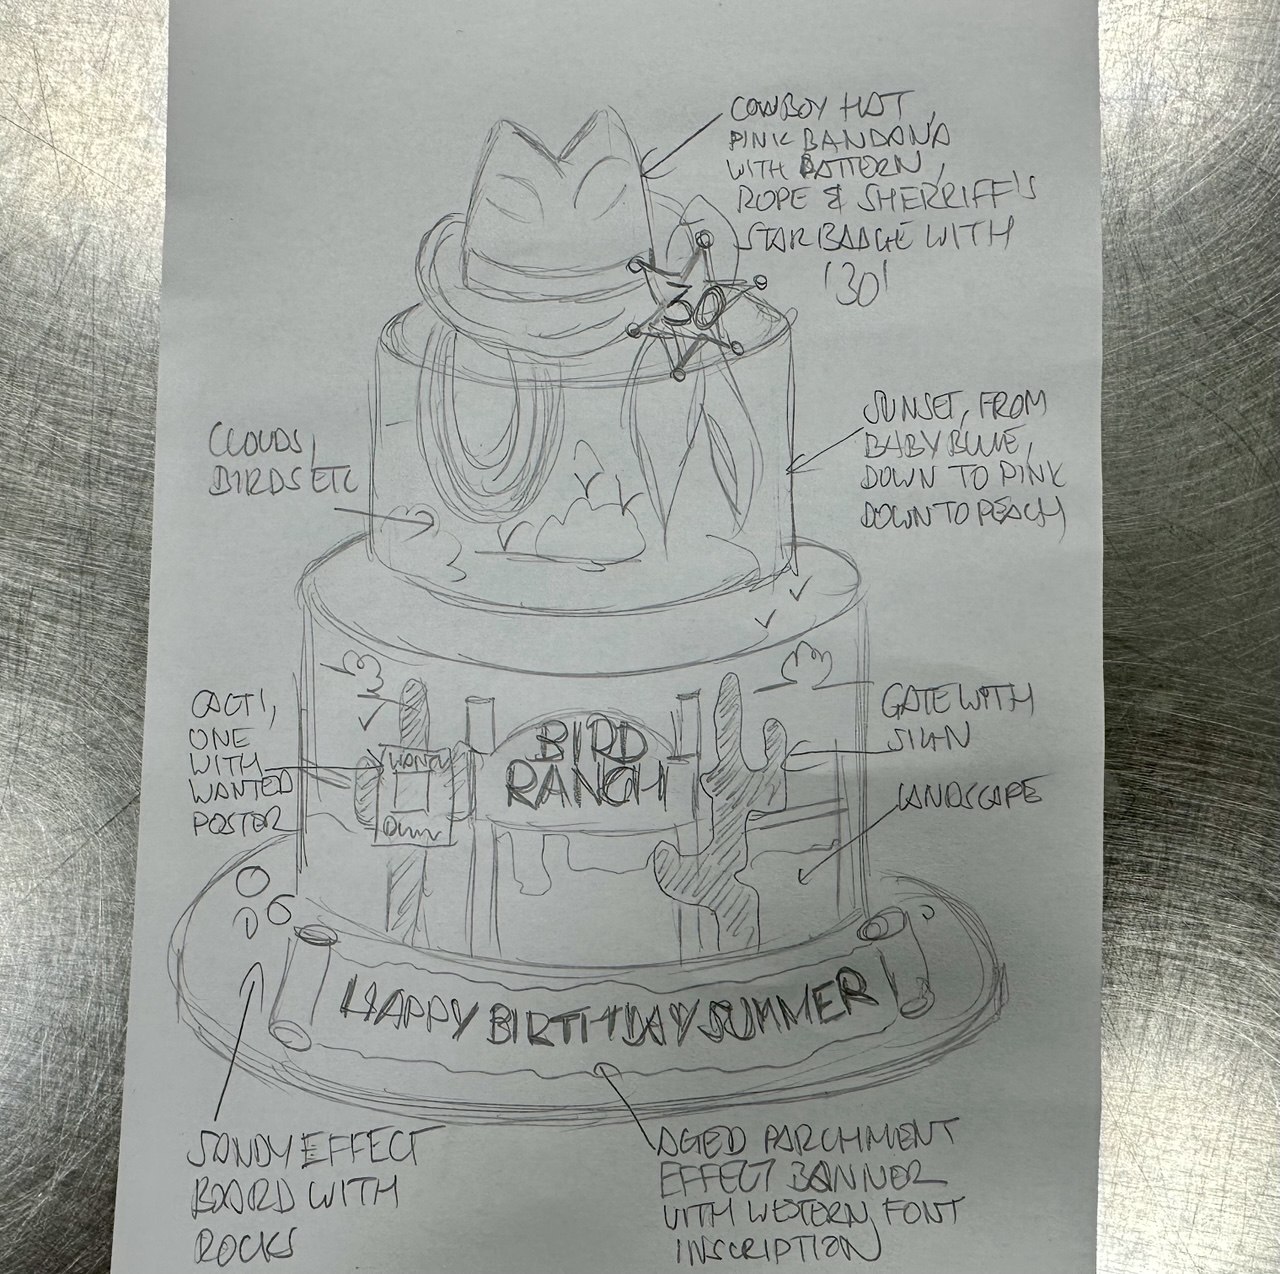 COWBOY HAT,
PINK BANDANA
WITH PATTERN,
ROPE & SHERRIFF'S
STAR BADGE WITH
'30'
30
SUNSET, FROM
BABY BLUE,
DOWN TO PINK
DOWN TO PEACH
CLOUDS,
BIRDS ETC
CACTI,
ONE
WITH
WANTED
POSTER
WANTED
BIRD
RANCH
GATE WITH
SIGN
LANDSCAPE
HAPPY BIRTHDAY SUMMER
SANDY EFFECT
BOARD WITH
ROCKS
AGED PARCHMENT
EFFECT BANNER
WITH WESTERN FONT
INSCRIPTION